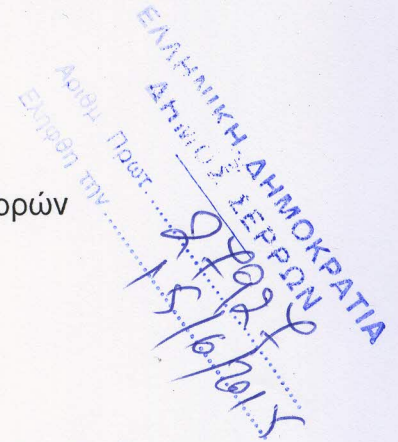 ορών
ΕΛΛΗΝΙΚΗ ΔΗΜΟΚΡΑΤΙΑ
ΔΗΜΟΣ ΣΕΡΡΩΝ
Αριθμ. Πρωτ.
Ελήφθη την 15/6/2015